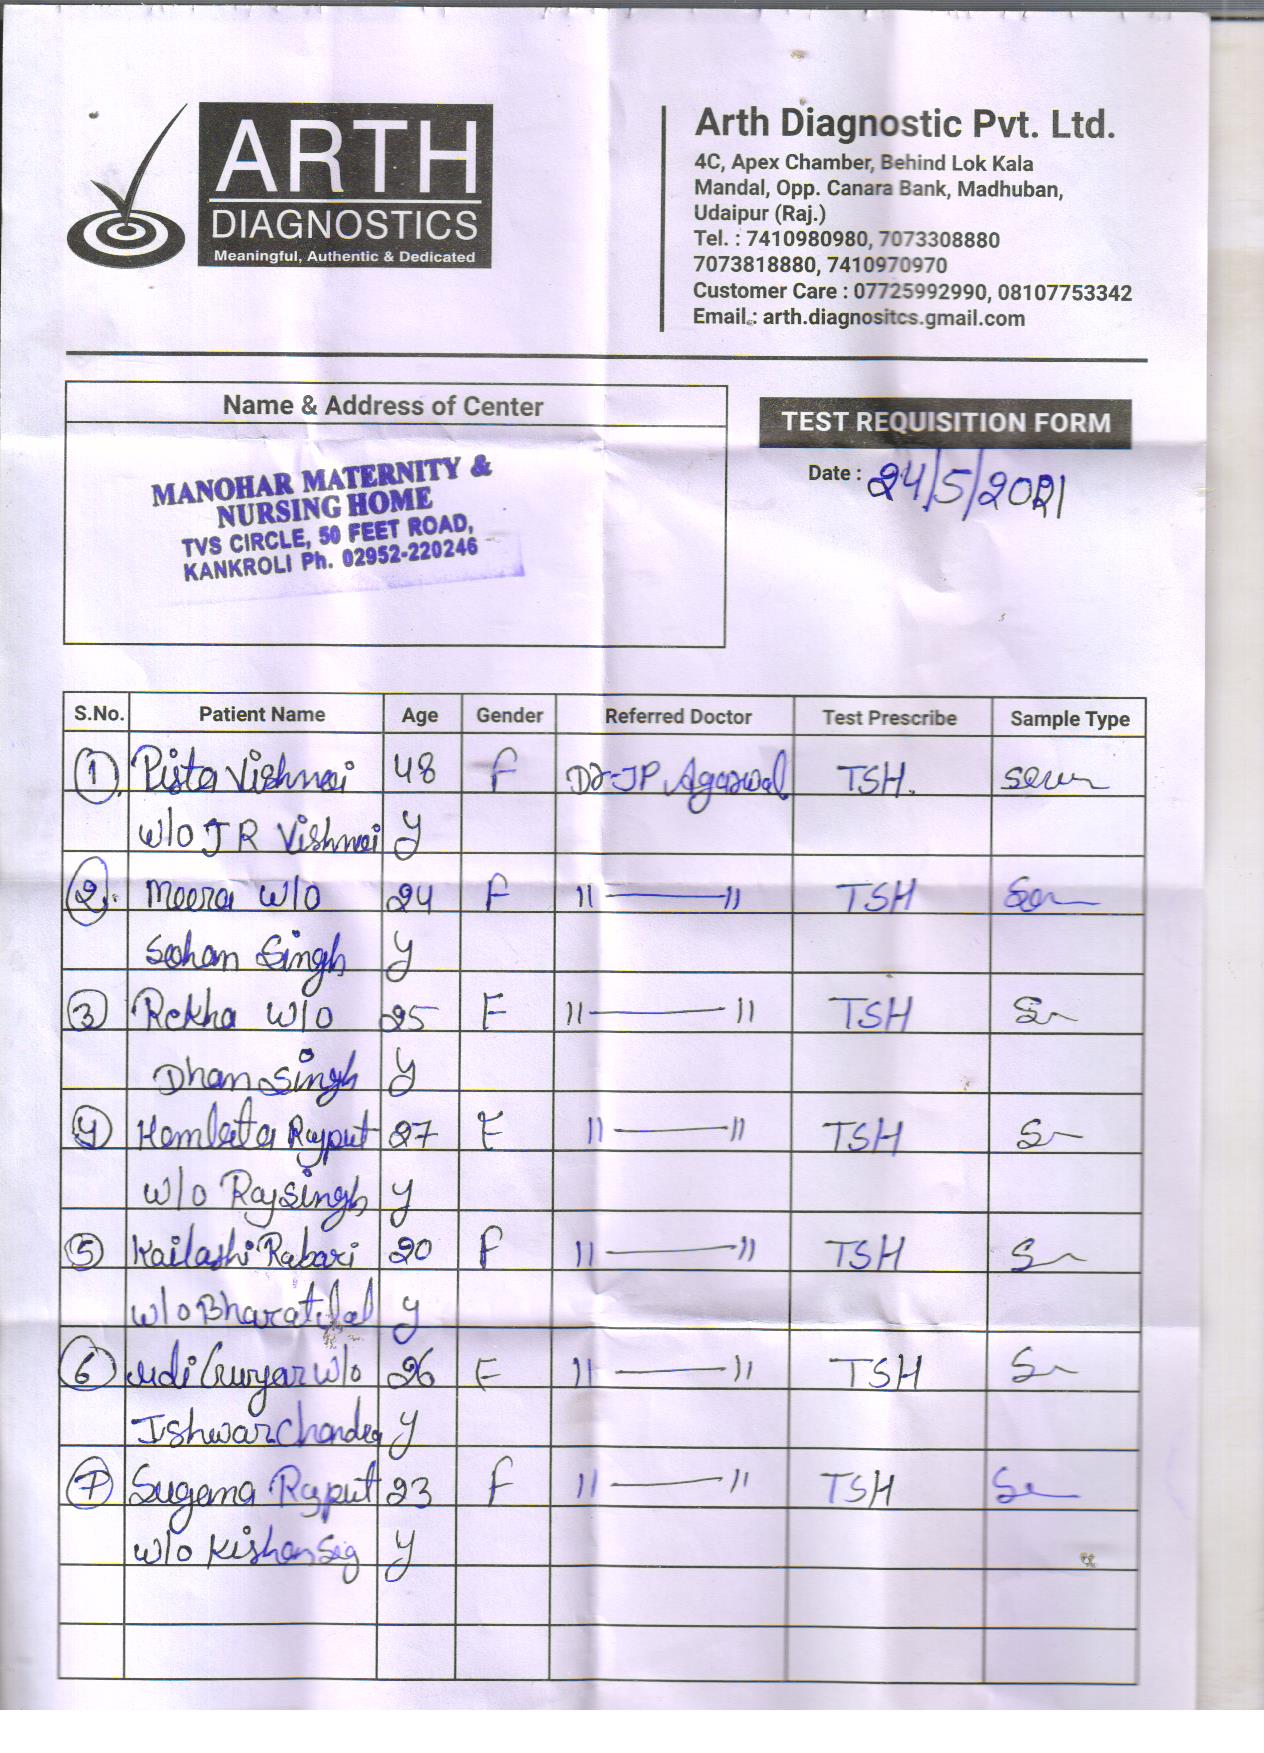 ARTH
DIAGNOSTICS
Meaningful, Authentic & Dedicated
Arth Diagnostic Pvt. Ltd.
4C, Apex Chamber, Behind Lok Kala
Mandal, Opp. Canara Bank, Madhuban,
Udaipur (Raj.)
Tel. : 7410980980, 7073308880
7073818880, 7410970970
Customer Care : 07725992990, 08107753342
Email.: arth.diagnositcs.gmail.com
Name & Address of Center
TEST REQUISITION FORM
Date : 24/5/2021
MANOHAR MATERNITY &
NURSING HOME
TVS CIRCLE, 50 FEET ROAD,
KANKROLI Ph. 02952-220246
S.No. Patient Name Age Gender Referred Doctor Test Prescribe Sample Type
1 Pista Vishnoi 48 F Dr JP Agarwal TSH.
w/o J R Vishnoi y
2. Meera W/o 24 F " —— " TSH
Sohan Singh y
3 Rekha W/o 25 F " —— " TSH
Dhan Singh y
4 Hemlata Rajput 27 F " —— " TSH
w/o Raj Singh y
5 Kailashi Rabari 20 F " —— " TSH
w/o Bharatlal y
6 w/o 26 F " —— " TSH
Ishwar Chandra y
7 Sugana Rajput 23 F " —— " TSH
w/o Kishan y